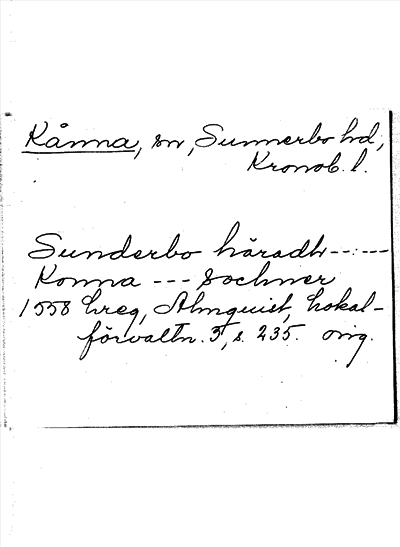 Kånna, sn, Sunnerbo hd,
Kronob. l.
Sunderbo häradh ------
Konna --- sochner
1558 hreg, Almquist, Lokal-
förvaltn. 3, s. 235. orig.